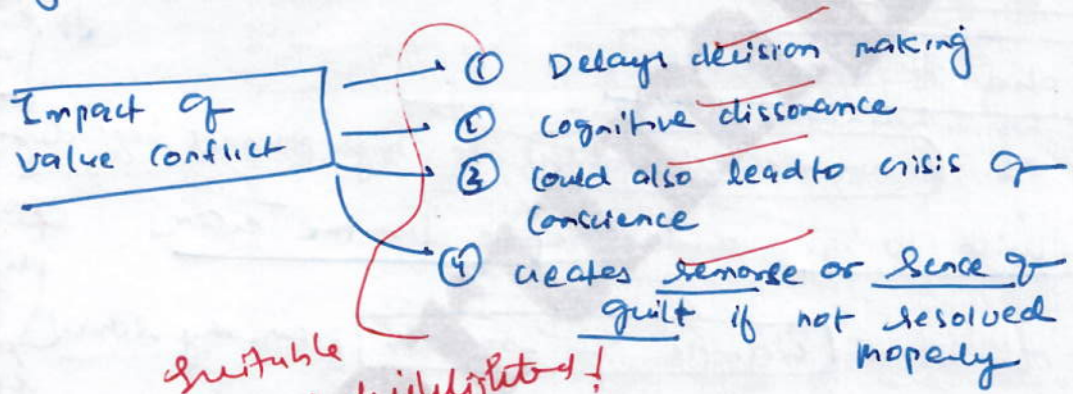 Impact of
value conflict
① Delays decision making
② cognitive dissonance
③ could also lead to crisis of
conscience
④ creates remorse or sence of
guilt if not resolved
properly
Suitable
highlighted!